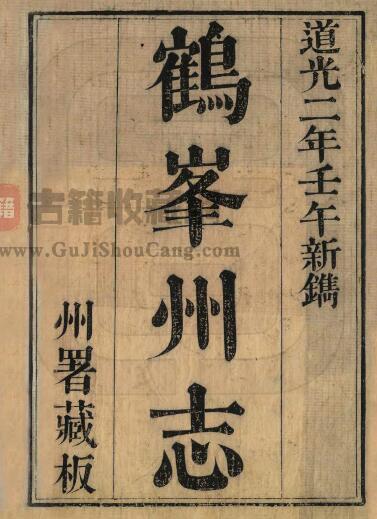 道光二年壬午新鐫
鶴峯州志
州署藏板
古籍收藏
www.GuJiShouCang.com